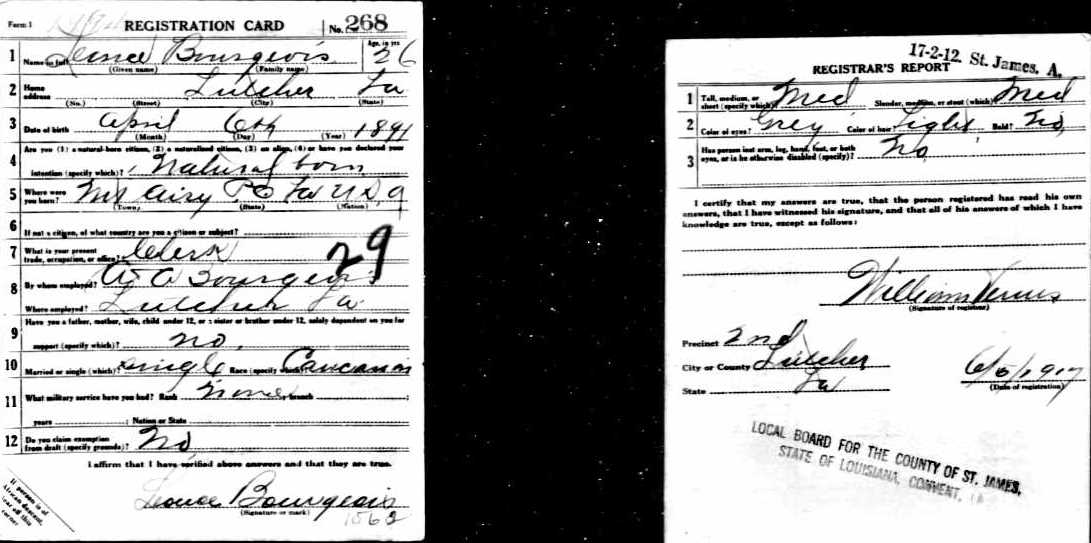 Form 1 REGISTRATION CARD No. 268
1 Name in full Leonce Bourgeois Age, in yrs 26
(Given name) (Family name)
2 Home address Lutcher La
(No.) (Street) (City) (State)
3 Date of birth April 6th 1891
(Month) (Day) (Year)
4 Are you (1) a natural-born citizen, (2) a naturalized citizen, (3) an alien, (4) or have you declared your
intention (specify which)? Natural born
5 Where were you born? Mt Airy P.O La U.S.A
(Town) (State) (Nation)
6 If not a citizen, of what country are you a citizen or subject?
7 What is your present trade, occupation, or office? Clerk 29
8 By whom employed? Bourgeois
Where employed? Lutcher La
9 Have you a father, mother, wife, child under 12, or a sister or brother under 12, solely dependent on you for
support (specify which)? no.
10 Married or single (which)? single Race (specify which)? Caucasian
11 What military service have you had? Rank None, branch ;
years ; Nation or State
12 Do you claim exemption from draft (specify grounds)? No
I affirm that I have verified above answers and that they are true.
Leonce Bourgeois
(Signature or mark)
If person is of
African descent,
tear off this
corner
17-2-12. St. James, A.
REGISTRAR'S REPORT
1 Tall, medium, or short (specify which)? Med Slender, medium, or stout (which)? Med
2 Color of eyes? Grey Color of hair? Light Bald? No,
3 Has person lost arm, leg, hand, foot, or both
eyes, or is he otherwise disabled (specify)? No,
I certify that my answers are true, that the person registered has read his own
answers, that I have witnessed his signature, and that all of his answers of which I have
knowledge are true, except as follows:
William
(Signature of registrar)
Precinct 2nd
City or County Lutcher
State La
6/5/1917
(Date of registration)
LOCAL BOARD FOR THE COUNTY OF ST. JAMES,
STATE OF LOUISIANA, CONVENT, LA